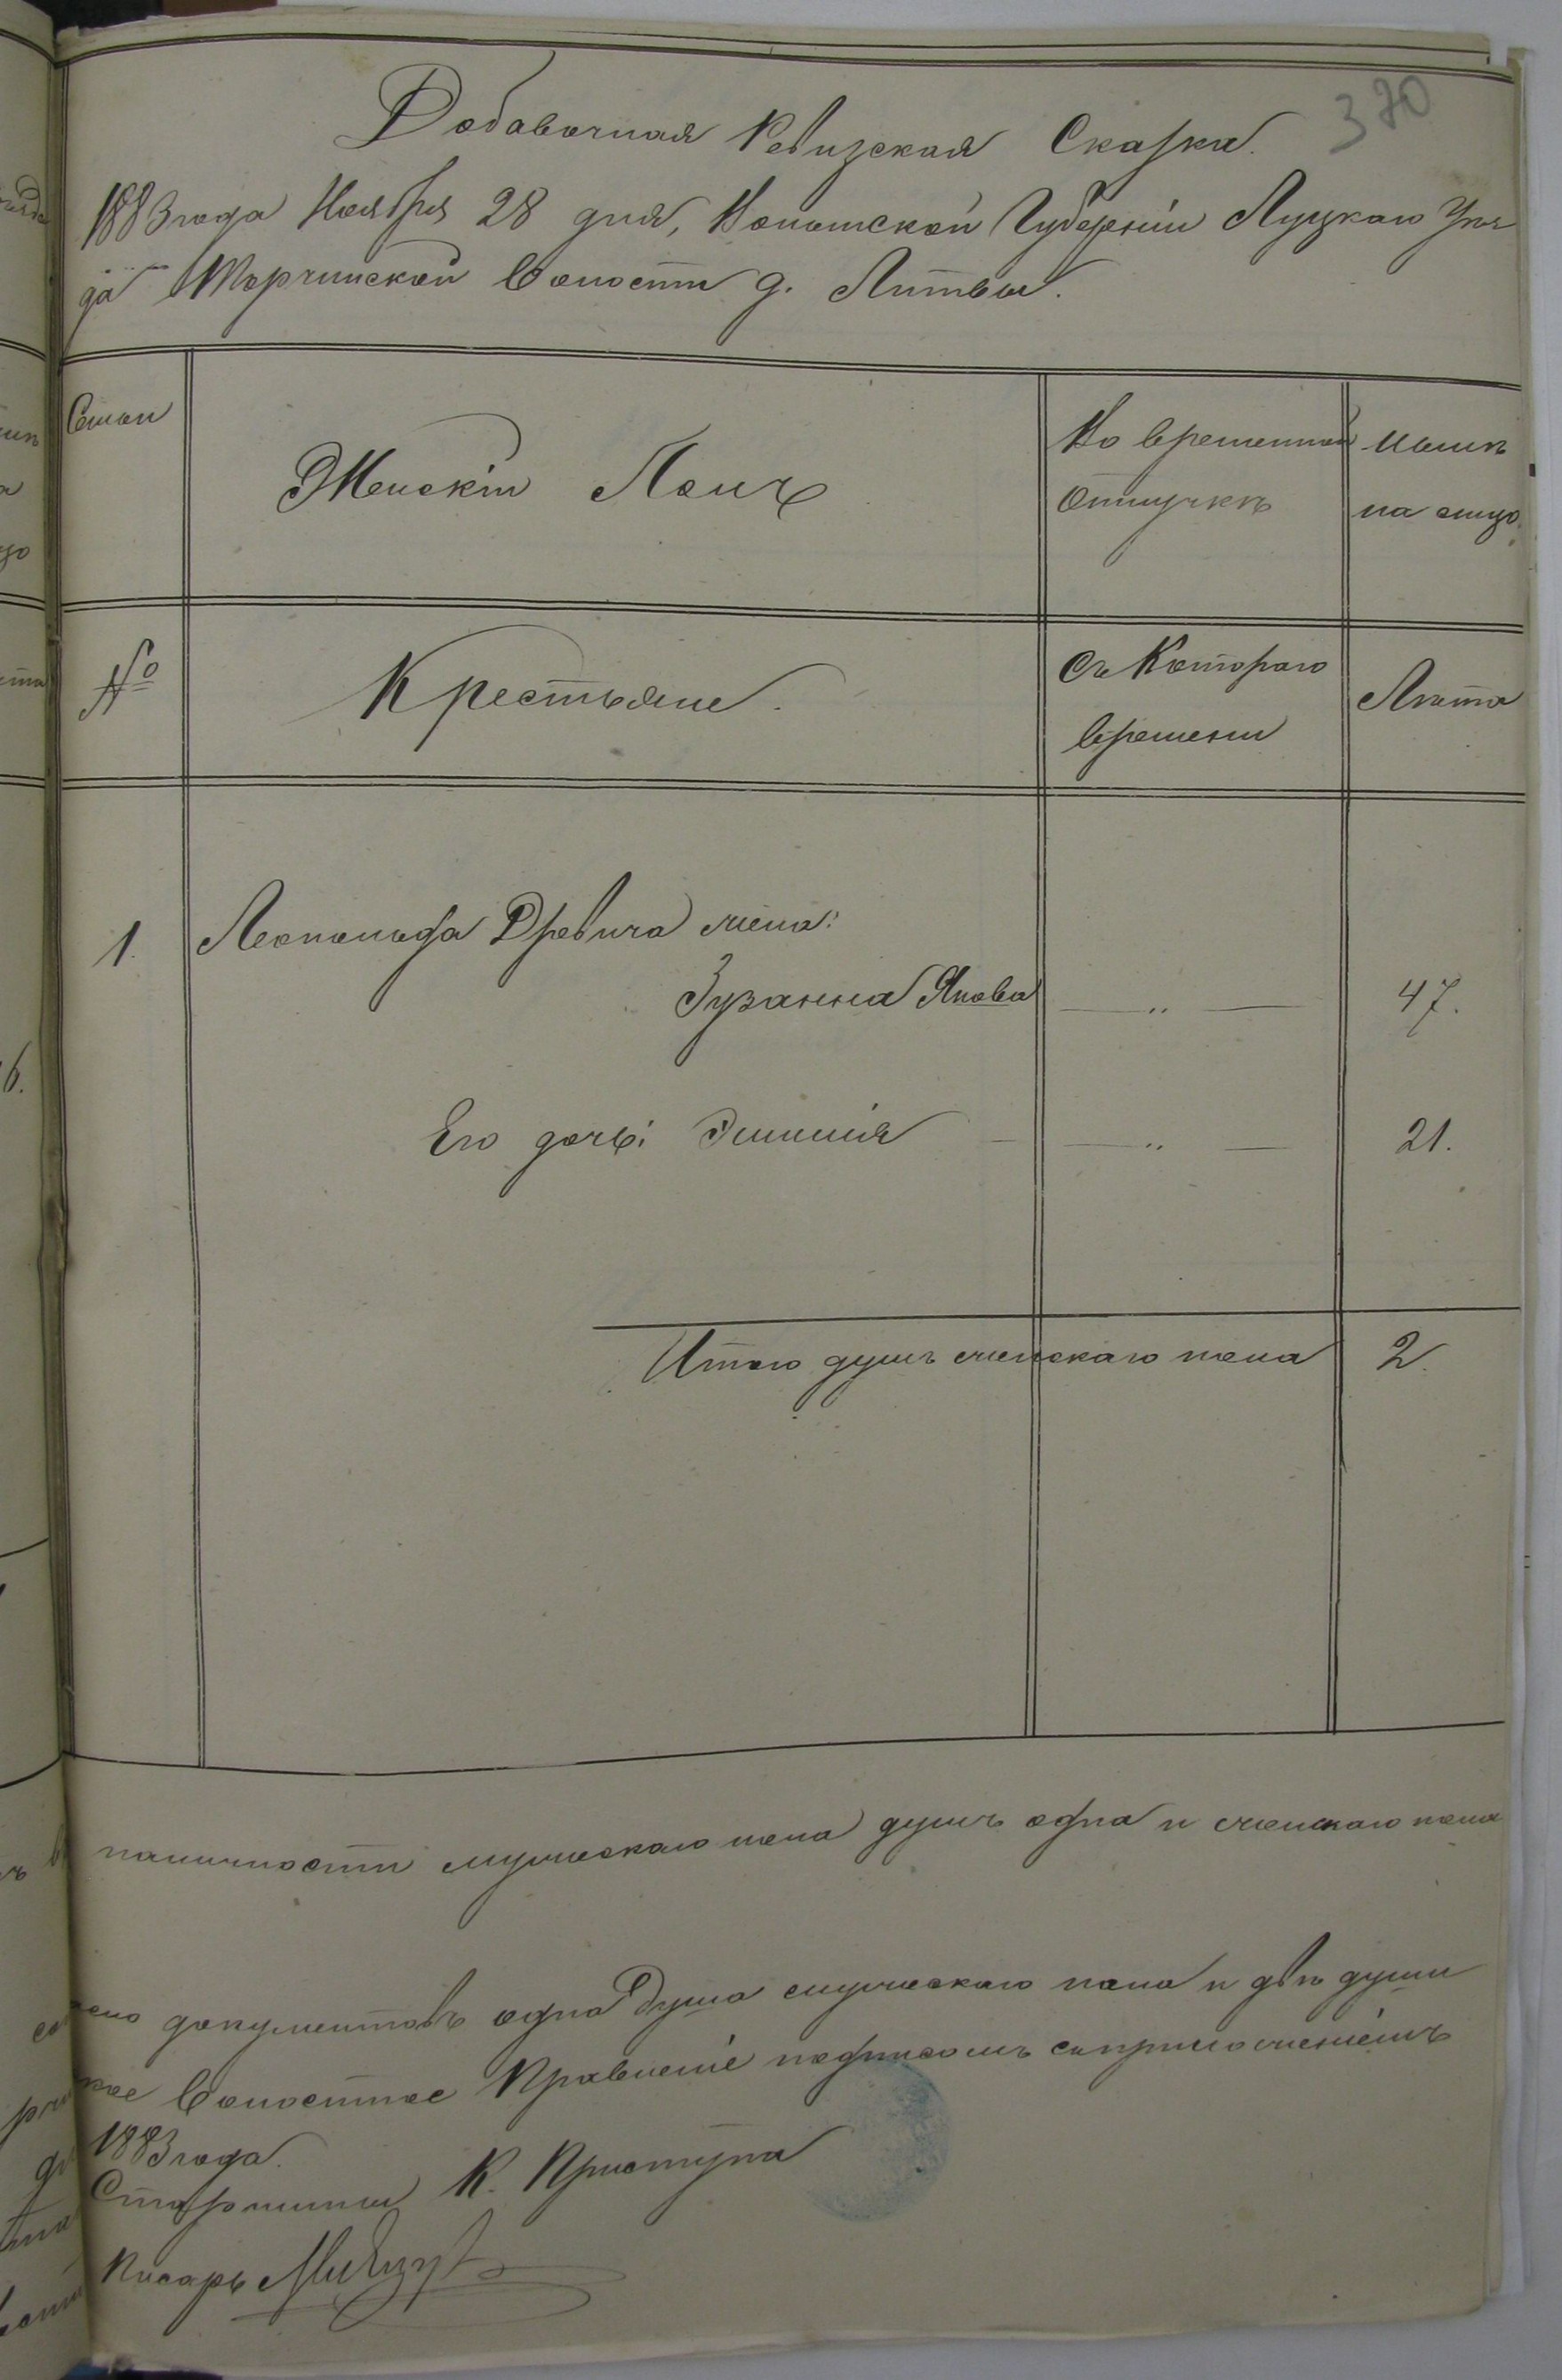 370
Добавочная Ревизская Сказка.
1883 года Ноября 28 дня, Волынской Губерніи Луцкаго Уѣз
да Торчинской Волости д. Литвы.
Семьи
Женскій Полъ
Во временной
отлучкѣ
Нынѣ
на лицо.
№
Крестьяне.
Съ Котораго
времени
Лѣта
1. Леопольда Древича жена:
Зузанна Якова — „ — 47.
Его дочь: Эмилія — „ — 21.
Итого душъ женскаго пола 2.
наличности мужескаго пола душъ одна и женскаго пола
документовъ одна душа мужескаго пола и двѣ души
Волостное Правленіе подписомъ съ приложеніемъ
1883 года.
Старшина К. Приступа
Писарь